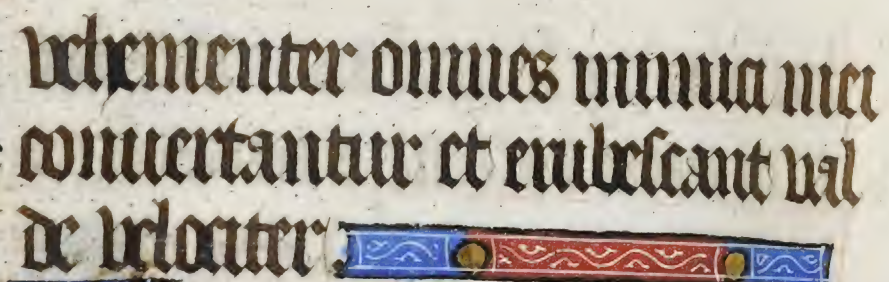 vehementer omnes inimici mei
convertantur et erubescant val
de velociter